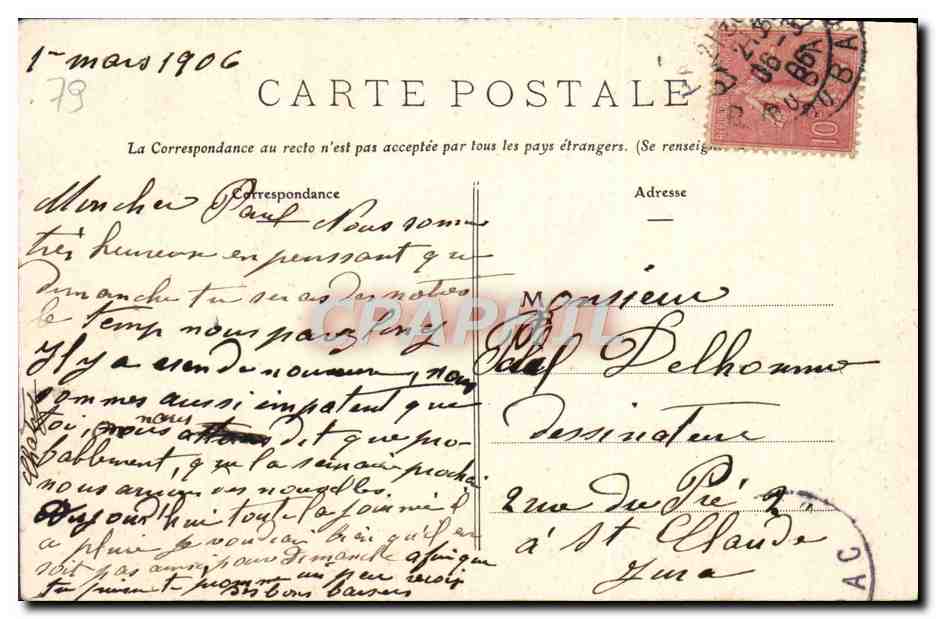 1er mars 1906
79
CARTE POSTALE
La Correspondance au recto n'est pas acceptée par tous les pays étrangers. (Se renseig
Correspondance
Mon cher Paul Nous somme
très heureuse en penssant que
dimanche tu seras des notres
le temp nous parez long
Il y a rien de nouveau, nous
sommes aussi impatient que
toi, nous dit que pro-
bablement, que la semaine prochai
nous aurions des nouvelles.
Aujourd'hui toute la journée il
a pluie je voudrai bien qu'il en
soit pas ainsi pour dimanche afin que
tu puisse te promene un peu
des bons baisers
Adresse
Monsieur
Paul Delhomme
dessinateur
2 rue du Pré 2
à St Claude
Jura
CPAPHIL
10
BA
AC